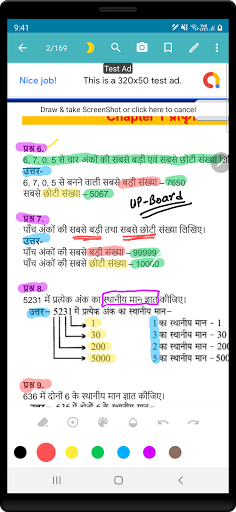 9:41
2/169
Test Ad
Nice job!
This is a 320x50 test ad.
Draw & take ScreenShot or click here to cancel
Chapter 1
प्रश्न 6.
6, 7, 0, 5 से चार अंकों की सबसे बड़ी एवं सबसे छोटी संख्या
उत्तर-
6, 7, 0, 5 से बनने वाली सबसे बड़ी संख्या – 7650
सबसे छोटी संख्या – 5067
UP-Board
प्रश्न 7.
पाँच अंकों की सबसे बड़ी तथा सबसे छोटी संख्या लिखिए।
उत्तर-
पाँच अंकों की सबसे बड़ी संख्या – 99999
पाँच अंकों की सबसे छोटी संख्या – 10000
प्रश्न 8.
5231 में प्रत्येक अंक का स्थानीय मान ज्ञात कीजिए।
उत्तर- 5231 में प्रत्येक अंक के स्थानीय मान-
1 1 का स्थानीय मान - 1
30 3 का स्थानीय मान - 30
200 2 का स्थानीय मान - 200
5000 5 का स्थानीय मान - 500
प्रश्न 9.
636 में दोनों 6 के स्थानीय मान ज्ञात कीजिए।